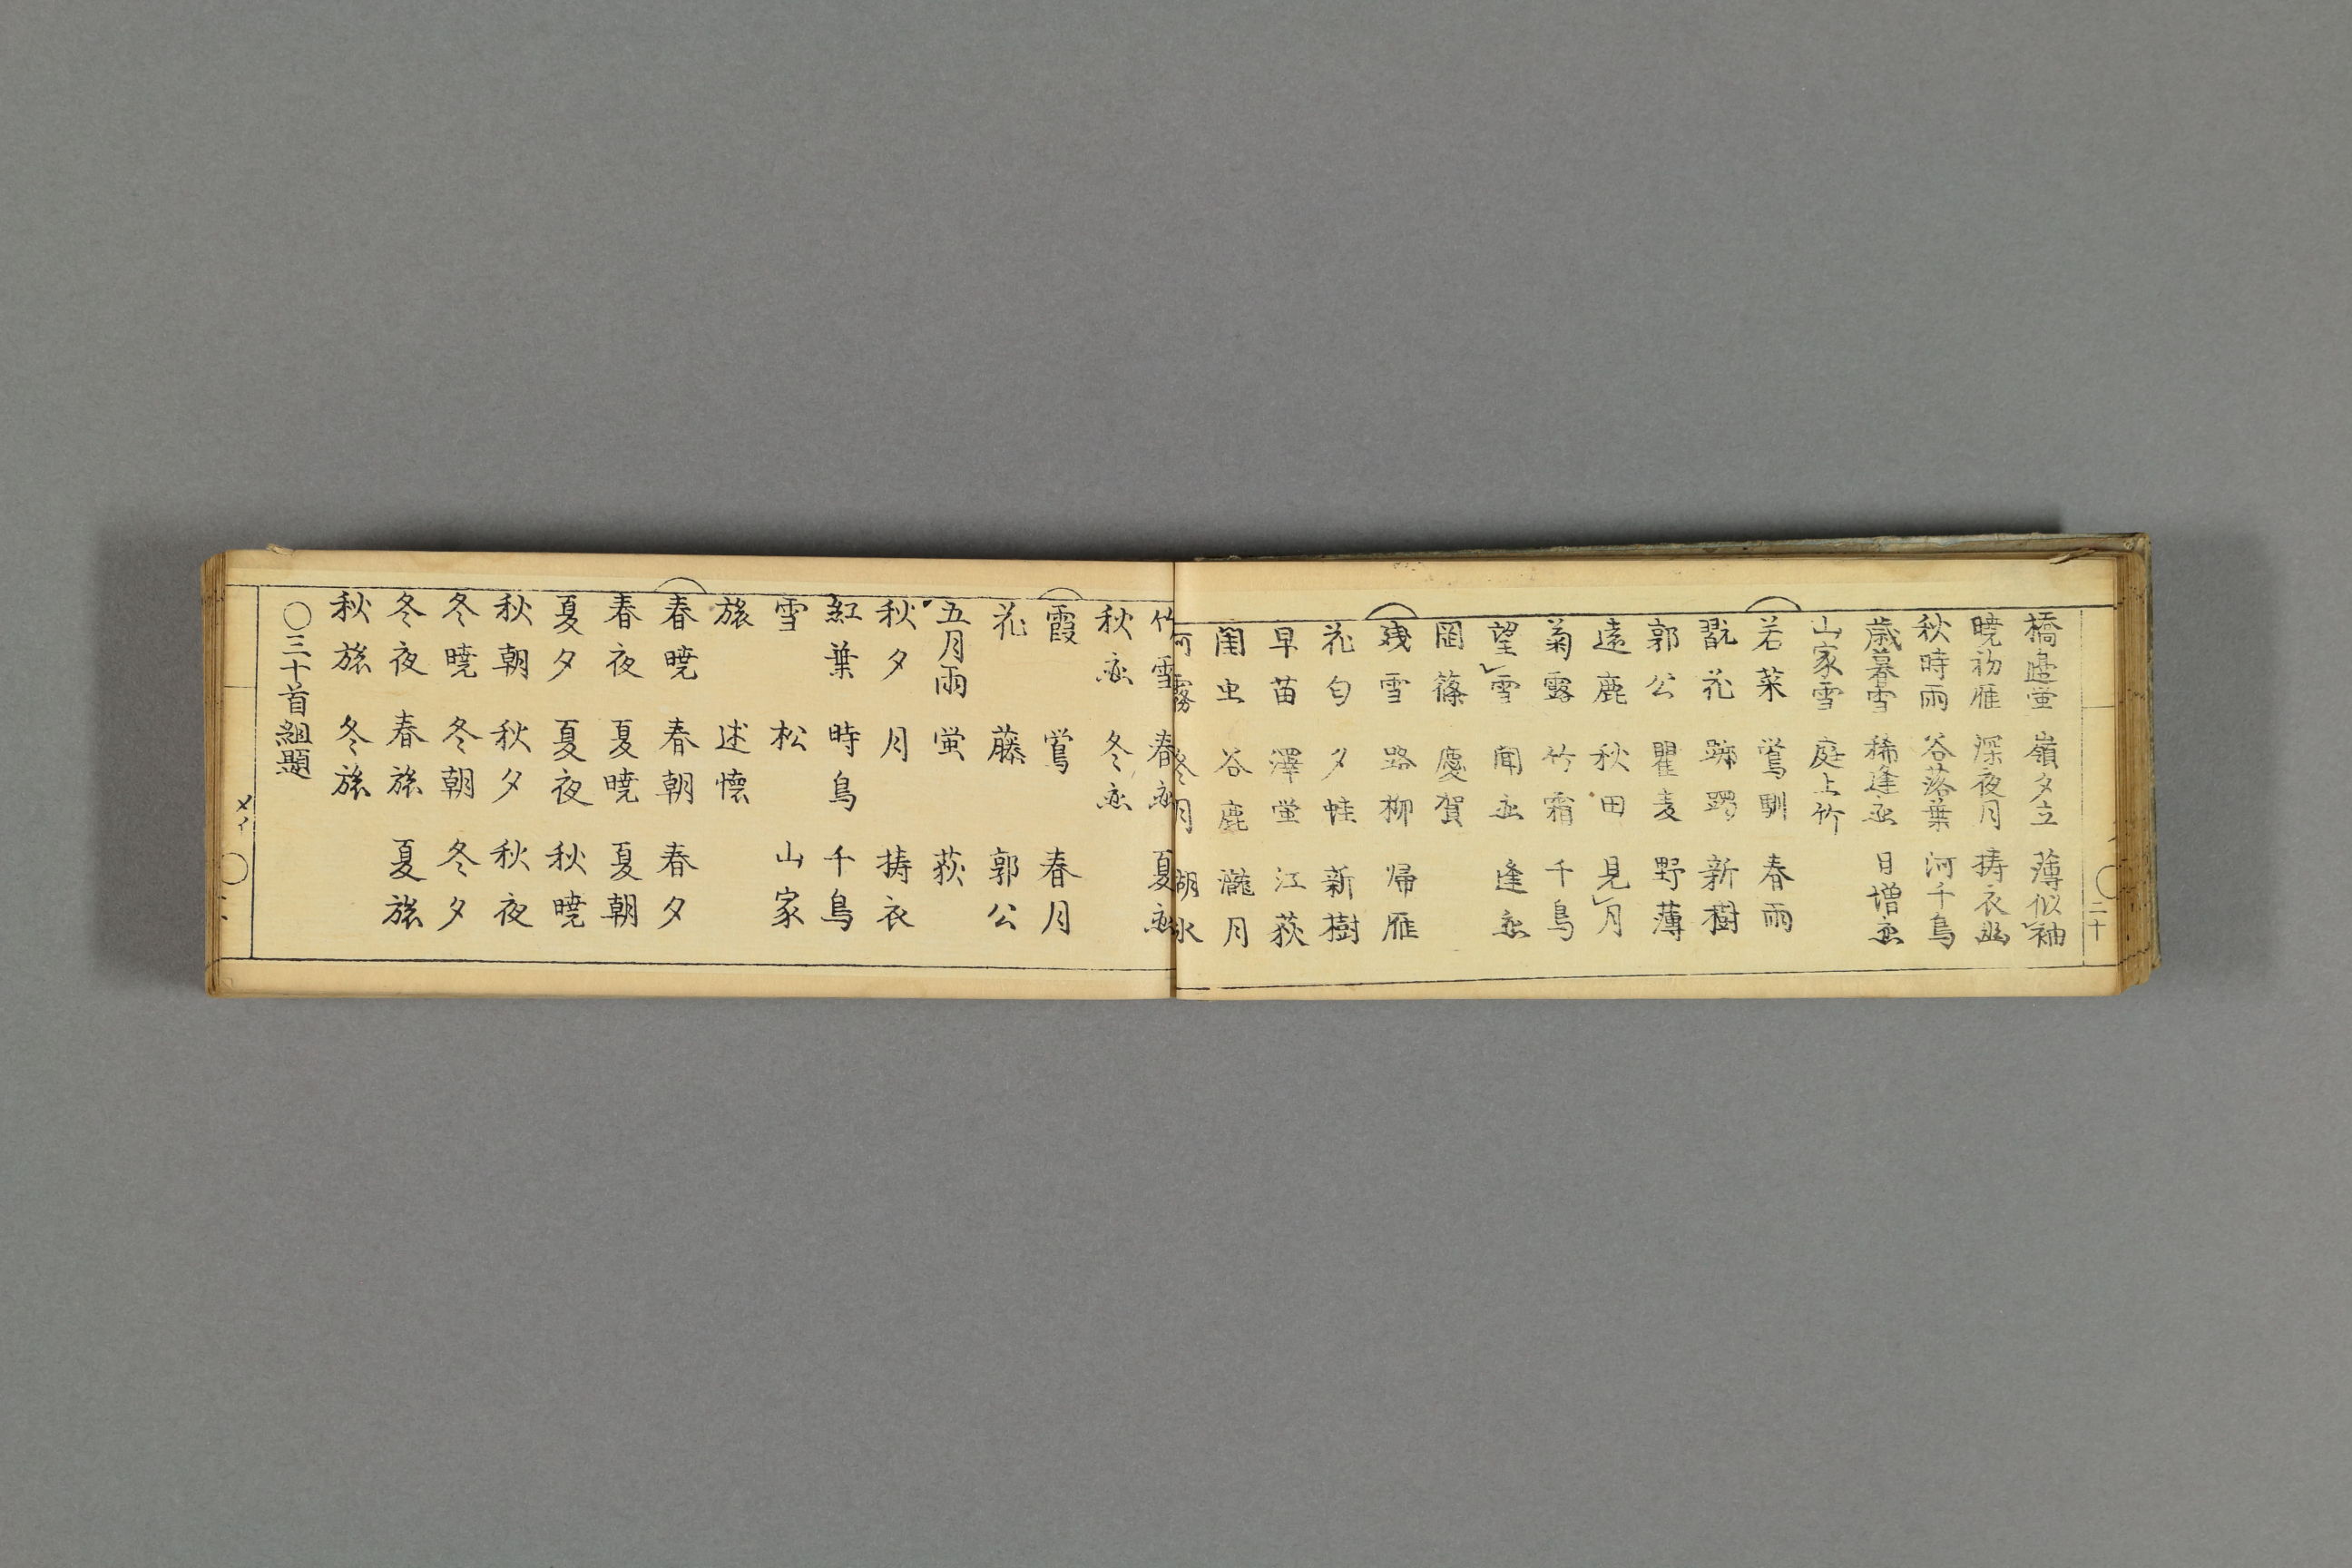 橋邉蛍 嶺夕立 薄似袖
暁初雁 深夜月 擣衣幽
秋時雨 谷落葉 河千鳥
歳暮雪 稀逢恋 日増恋
山家雪 庭上竹
若菜 鴬馴 春雨
翫花 躑躅 新樹
郭公 瞿麦 野薄
遠鹿 秋田 見月
菊露 竹霜 千鳥
望雪 聞恋 逢恋
岡篠 慶賀
残雪 路柳 帰雁
花匂 夕蛙 新樹
早苗 澤蛍 江荻
閨虫 谷鹿 瀧月
河霧 冬月 湖氷
二十
竹雪 春恋 夏恋
秋恋 冬恋
霞 鴬 春月
花 藤 郭公
五月雨 蛍 荻
秋夕 月 擣衣
紅葉 時鳥 千鳥
雪 松 山家
旅 述懐
春暁 春朝 春夕
春夜 夏暁 夏朝
夏夕 夏夜 秋暁
秋朝 秋夕 秋夜
冬暁 冬朝 冬夕
冬夜 春旅 夏旅
秋旅 冬旅
〇三十首組題